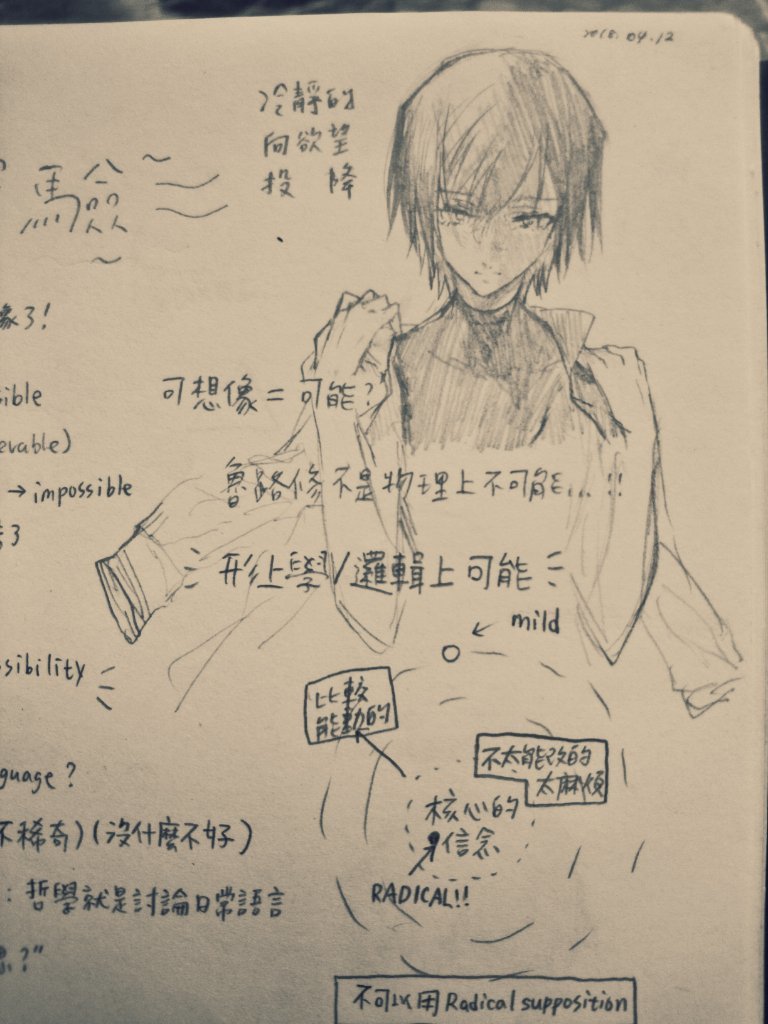 2018.04.12
冷靜的
向欲望
投降
馬僉
像了!
sible
可想像 = 可能?
evable)
→ impossible
魯路修不是物理上不可能...!!
了
形上學/邏輯上可能
← mild
sibility
比較
能動的
不太能改的
太麻煩
guage?
核心的
信念
不稀奇)(沒什麼不好)
RADICAL!!
: 哲學就是討論日常語言
?"
不可以用 Radical supposition